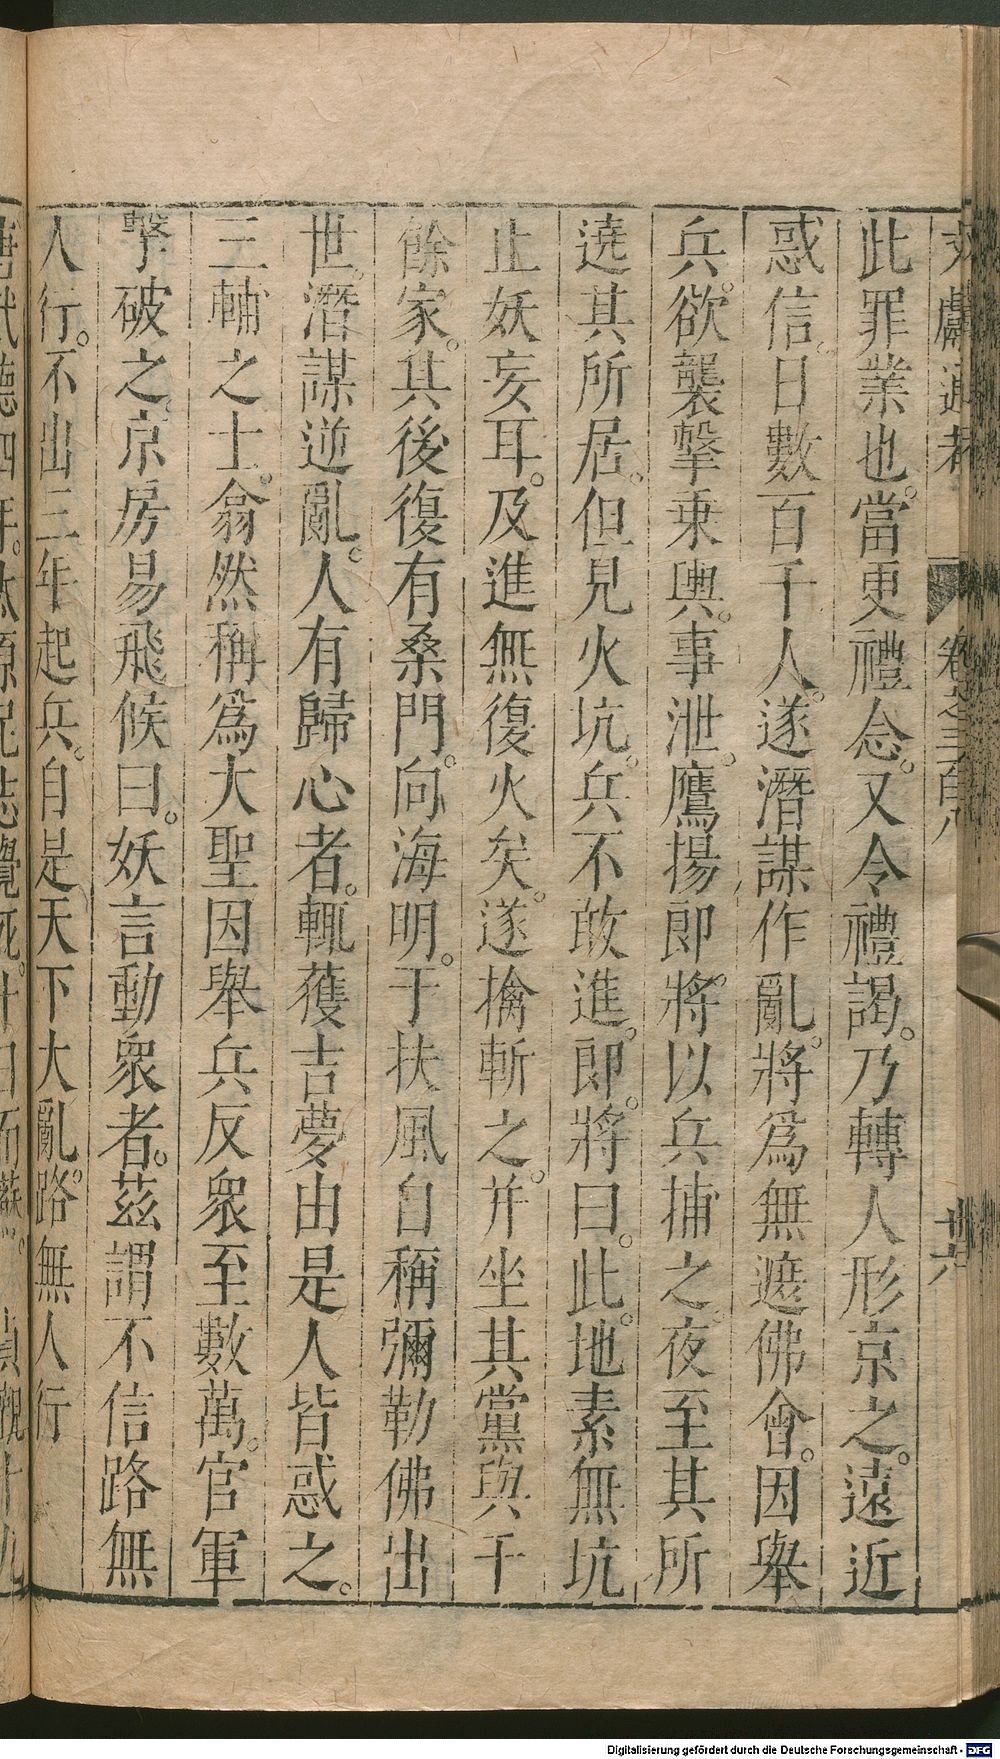 文獻通考 卷之三百八 廿六
此罪業也。當更禮念。又令禮謁。乃轉人形京之。遠近
惑信。日數百千人。遂潛謀作亂。將爲無遮佛會。因舉
兵。欲襲擊乗輿。事泄。鷹揚即將。以兵捕之。夜至其所
遶其所居。但見火坑。兵不敢進。即將曰。此地素無坑
止妖妄耳。及進無復火矣。遂擒斬之。并坐其黨與千
餘家。其後復有桑門。向海明。于扶風自稱彌勒佛出
世。潛謀逆亂。人有歸心者。輒獲吉夢由是人皆惑之。
三輔之士。翕然稱爲大聖因舉兵反衆至數萬。官軍
擊破之。京房易飛候曰。妖言動衆者。茲謂不信路無
人行。不出三年起兵。自是天下大亂。路無人行
唐武德四年。太原尼志覺死。十日而蘇。 貞觀十九
Digitalisierung gefördert durch die Deutsche Forschungsgemeinschaft - DFG